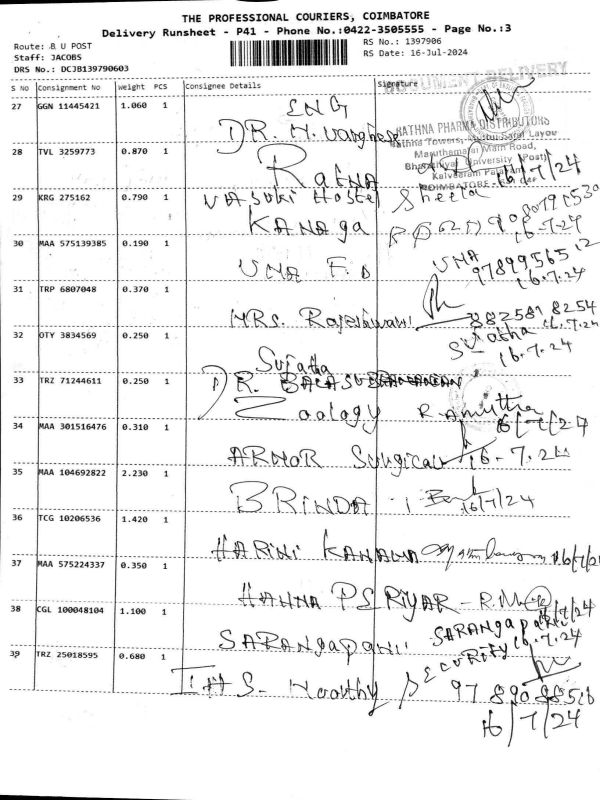 THE PROFESSIONAL COURIERS, COIMBATORE
Delivery Runsheet - P41 - Phone No.:0422-3505555 - Page No.:3
Route: B U POST
RS No.: 1397906
Staff: JACOBS
RS Date: 16-Jul-2024
DRS No.: DCJB139790603
DOCUMENT DELIVERY
S No Consignment No Weight PCS Consignee Details Signature
27 GGN 11445421 1.060 1 ENG
DR. M. Varghese
RATHNA PHARMA DISTRIBUTORS
Rathna Towers, Layout
Maruthamalai Main Road,
Bharathiyar University (Post)
Kalveeram Palayam
COIMBATORE
28 TVL 3259773 0.870 1
Ratna 16/7/24
29 KRG 275162 0.790 1 VASUKI Hostel Sheela
KANAga 16.7.24
30 MAA 575139385 0.190 1
UMA F.D UMA 9789956512
16.7.24
31 TRP 6807048 0.370 1
MRS. Rajeshwari 882581 8254
16.7.24
32 OTY 3834569 0.250 1 Sujatha
16.7.24
Sujatha
33 TRZ 71244611 0.250 1 DR. BALASUBRAMANIAN
Zoology R. Amutha
34 MAA 301516476 0.310 1 16/7/24
ARMOR Surgicals 16-7-24
35 MAA 104692822 2.230 1
BRINDA 16/7/24
36 TCG 10206536 1.420 1
HARINI KANAGA
37 MAA 575224337 0.350 1
HAHNA PS RIYAR - R.M
38 CGL 100048104 1.100 1 SARANgapani
SARANgapani 16.7.24
39 TRZ 25018595 0.680 1 SECURITY
IAS - Moorthy
16/7/24